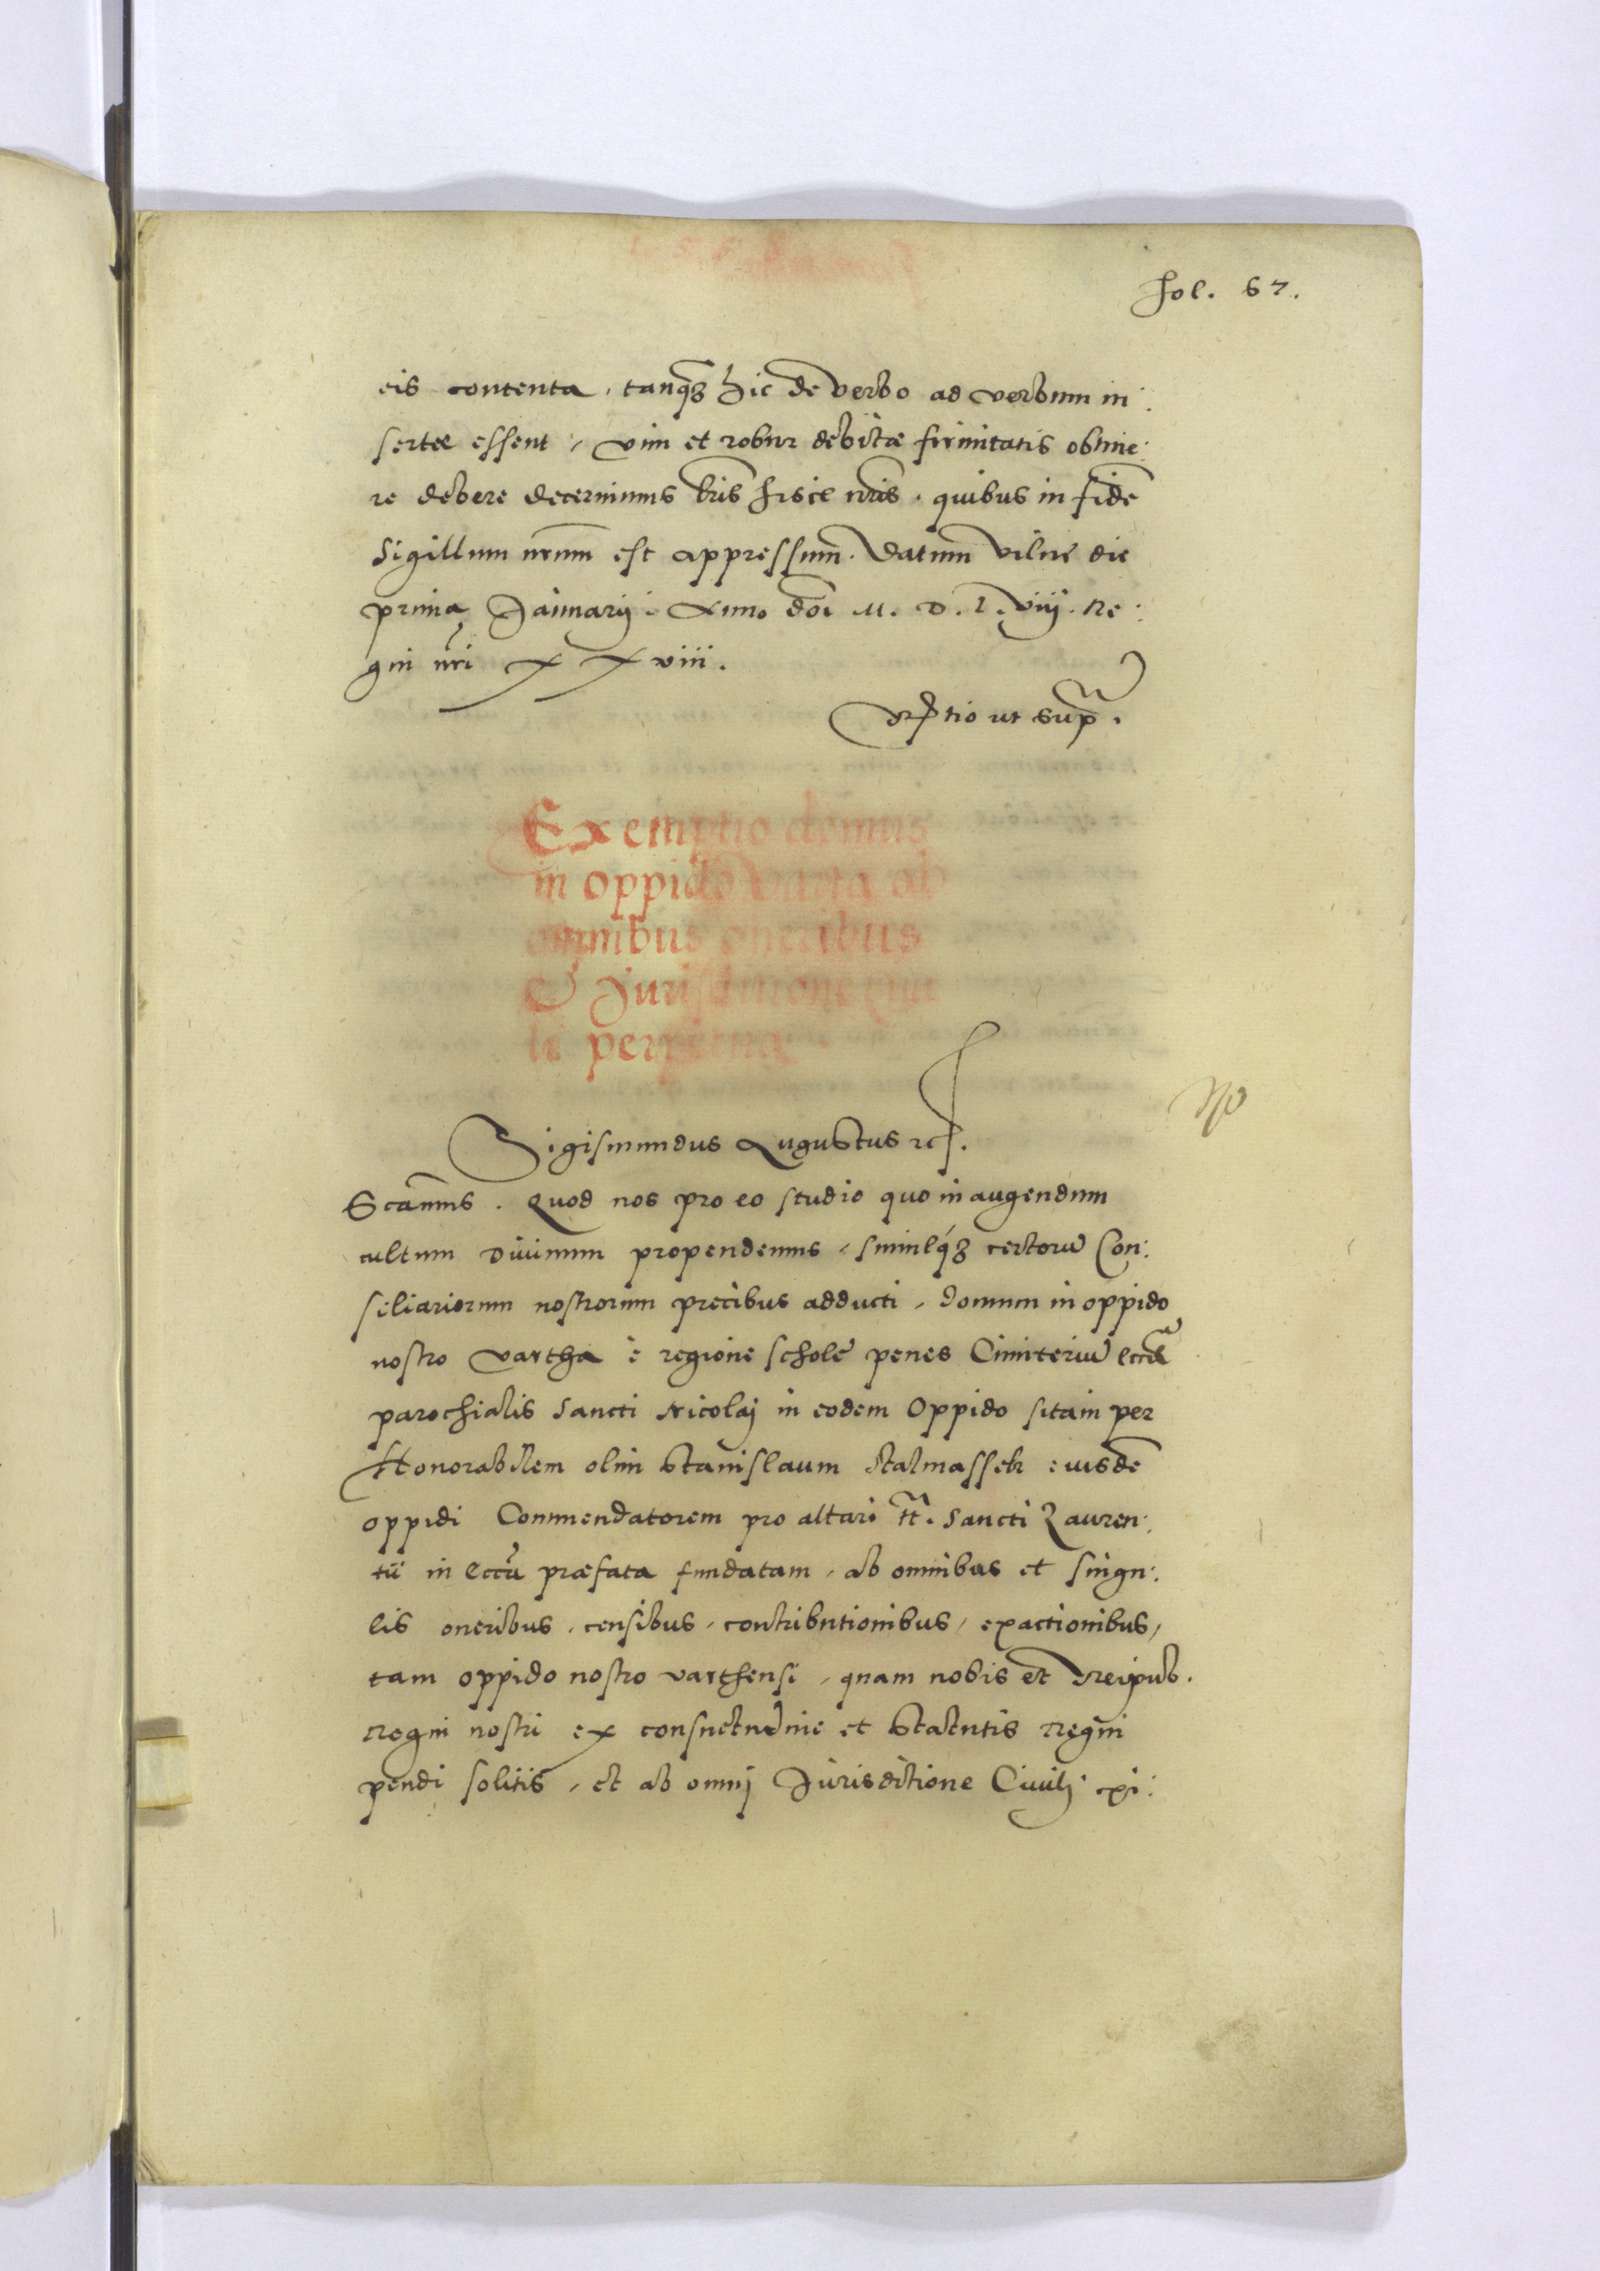 fol. 67.
eis contenta, tanq3 hic de verbo ad verbum in:
sertae essent, vim et robur debitae firmitatis obtine:
re debere decernimus lris hisce nris. quibus in fidē
Sigillum nrum est appressum. Datum Vilne die
prima Januarij. Anno doi M. D. L. viij. Re:
gni nri xxviii.
Rtio ut supra.
Exemptio domus
in oppido Varta ab
omnibus oneribus
& Jurisditione civi
li perpetua
Sigismundus Augustus rc.
Scāmus. Quod nos pro eo studio quo in augendum
cultum Divinum propendemus, simulq3 certorū Con:
siliariorum nostrorum precibus adducti, domum in oppido
nostro Vartha è regione schole penes Cimiteriū eccle
parochialis Sancti Nicolaj in eodem Oppido sitam per
Honorabilem olim Stanislaum Stalmassek eiusdē
oppidi Commendatorem pro altari tt. Sancti Lauren:
tii in eccla praefata fundatam, ab omnibus et singu:
lis oneribus, censibus, contributionibus, exactionibus,
tam oppido nostro varthensi, quam nobis et Reipub.
Regni nostri ex consuetudine et statutis Regni
pendi solitis, et ab omni Jurisditione Civili exi: